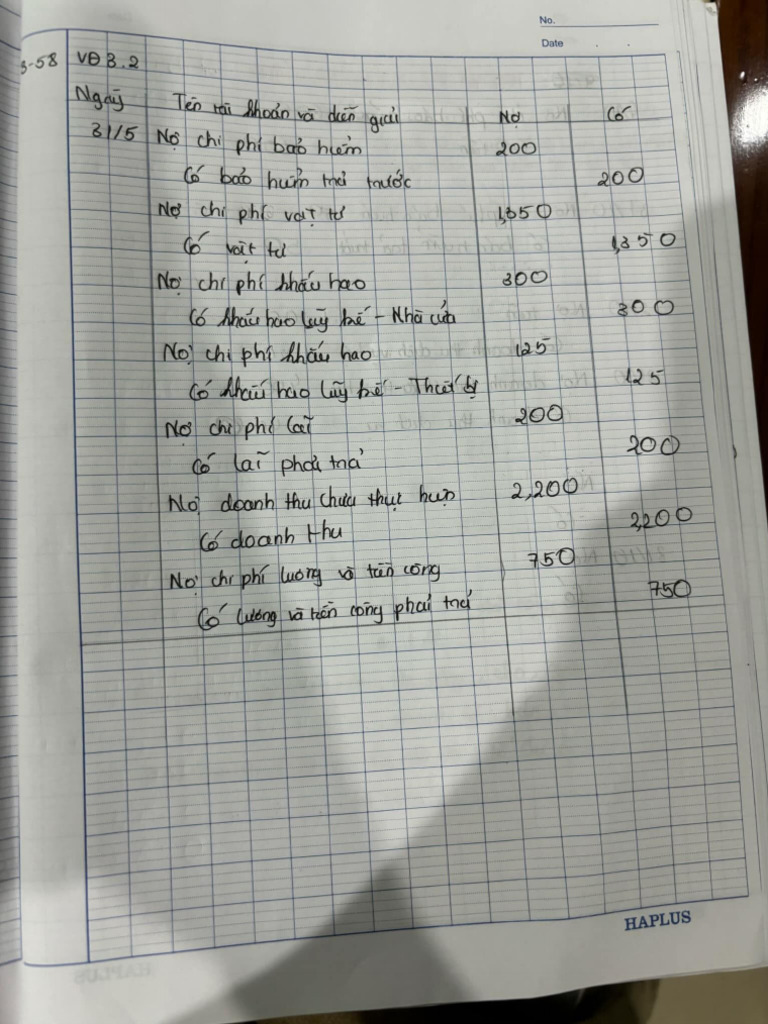 No.
Date
3-58 VĐ 3.2
Ngày Tên tài khoản và diễn giải Nợ Có
31/5 Nợ chi phí bảo hiểm 200
Có bảo hiểm trả trước 200
Nợ chi phí vật tư 1,350
Có vật tư 1,350
Nợ chi phí khấu hao 300
Có khấu hao luỹ kế - Nhà cửa 300
Nợ chi phí khấu hao 125
Có khấu hao luỹ kế - Thiết bị 125
Nợ chi phí lãi 200
Có lãi phải trả 200
Nợ doanh thu chưa thực hiện 2,200
Có doanh thu 2,200
Nợ chi phí lương và tiền công 750
Có lương và tiền công phải trả 750
HAPLUS